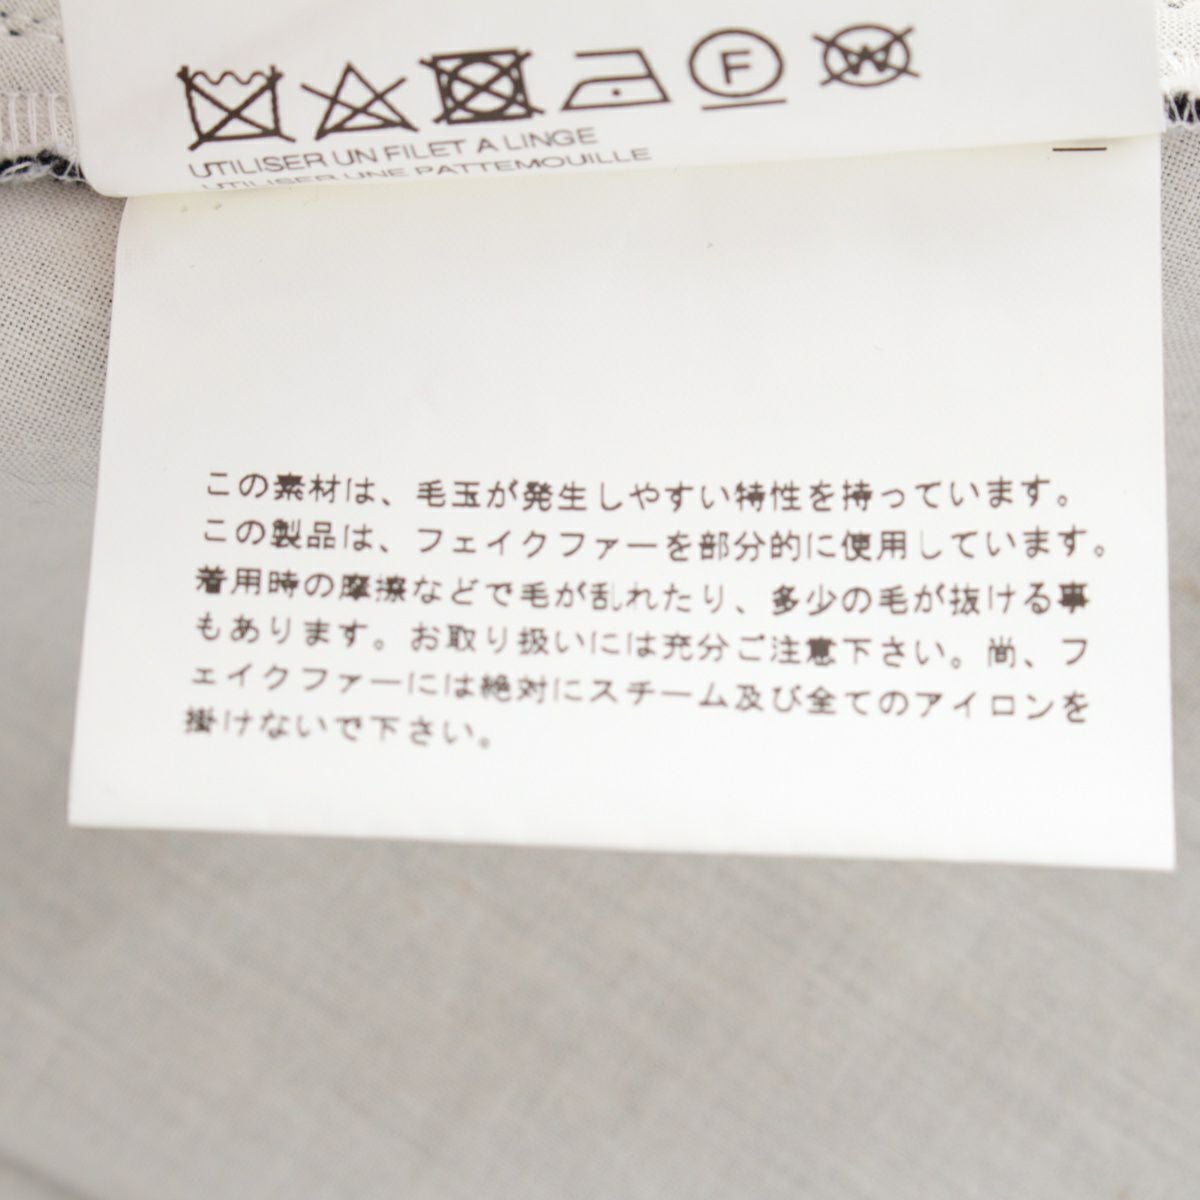 F
W
UTILISER UN FILET A LINGE
UTILISER UNE PATTEMOUILLE
この素材は、毛玉が発生しやすい特性を持っています。
この製品は、フェイクファーを部分的に使用しています。
着用時の摩擦などで毛が乱れたり、多少の毛が抜ける事
もあります。お取り扱いには充分ご注意下さい。尚、フ
ェイクファーには絶対にスチーム及び全てのアイロンを
掛けないで下さい。